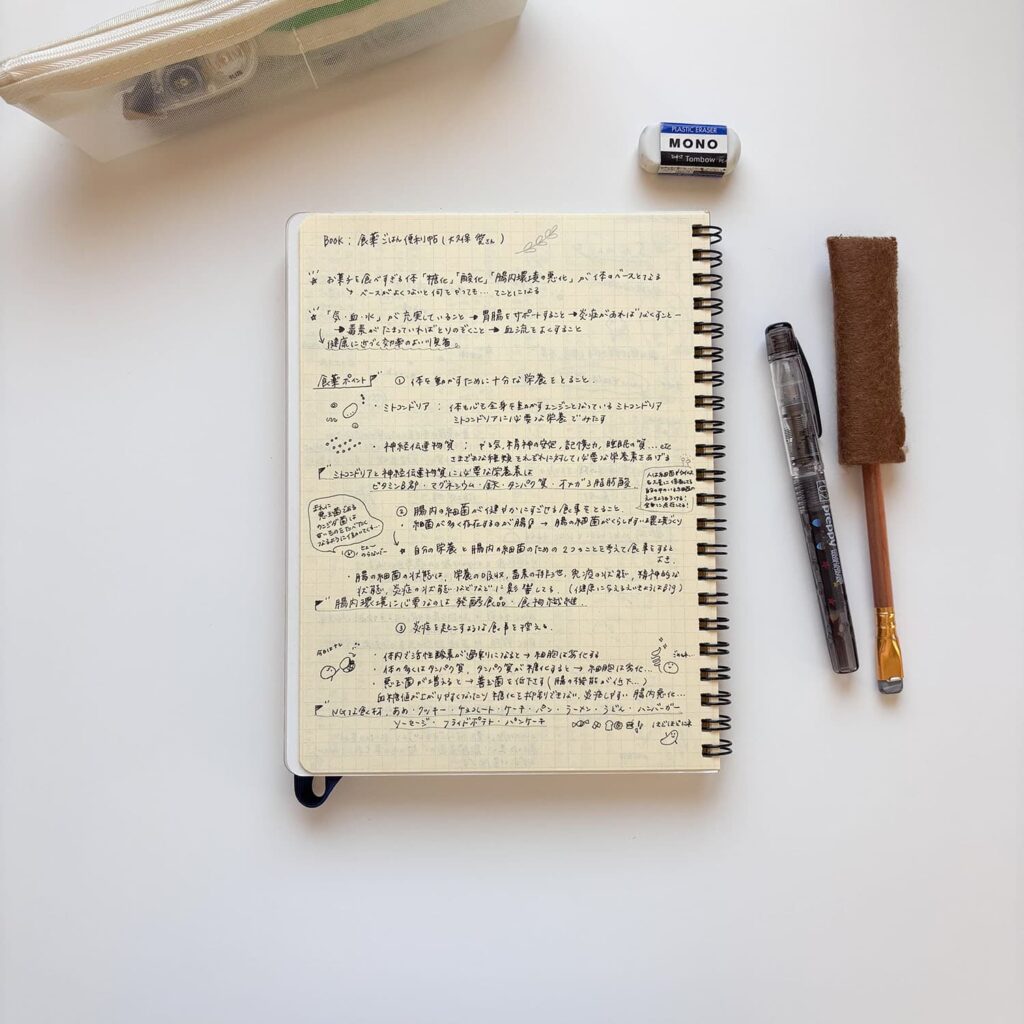 PLASTIC ERASER
MONO
Tombow
BOOK : 食薬ごはん便利帖 (大久保 愛さん)
お菓子を食べすぎる体「糖化」「酸化」「腸内環境の悪化」が体のベースとなる
↳ ベースがよくないと何をやっても… てことになる
「気・血・水」が充実していること → 胃腸をサポートすること → 炎症があればなくすこと
→ 毒素がたまっていればとりのぞくこと → 血流をよくすること
健康に近づく効率のよい順番。
食薬ポイント
① 体を動かすために十分な栄養をとること.
・ミトコンドリア : 体も心も全身を動かすエンジンとなっているミトコンドリア
ミトコンドリアに必要な栄養でみたす
・神経伝達物質 ; やる気, 精神の安定, 記憶力, 睡眠の質…etc
さまざまな種類それぞれに対して必要な栄養素をあげる
ミトコンドリアと神経伝達物質に必要な栄養素は
ビタミンB群・マグネシウム・鉄・タンパク質・オメガ3脂肪酸
② 腸内の細菌が健やかにすごせる食事をとること.
・細菌が多く存在するのが腸 → 腸の細菌がくらしやすい環境づくり
自分の栄養と腸内の細菌のための2つのことを考えて食事をすると
よき.
・腸の細菌の状態は, 栄養の吸収, 毒素の排せつ, 免疫の状態, 精神的な
状態, 炎症の状態などなどに影響してる. (健康に与えるえいきょうは多大)
腸内環境に必要なのは 発酵食品・食物繊維.
③ 炎症を起こすような食事を控える.
・体内で活性酸素が過剰になると → 細胞は劣化する
・体の多くはタンパク質, タンパク質が糖化すると → 細胞は劣化.
・悪玉菌が増えると → 善玉菌を低下さす (腸の機能が低下…)
血糖値が上がりやすくなったり 糖化を抑制できない, 炎症しやすい 腸内悪化…
NGな食材, あめ・クッキー・チョコレート・ケーキ・パン・ラーメン・うどん・ハンバーガー
ソーセージ・フライドポテト・パンケーキ
ほどほどにネ
preppy